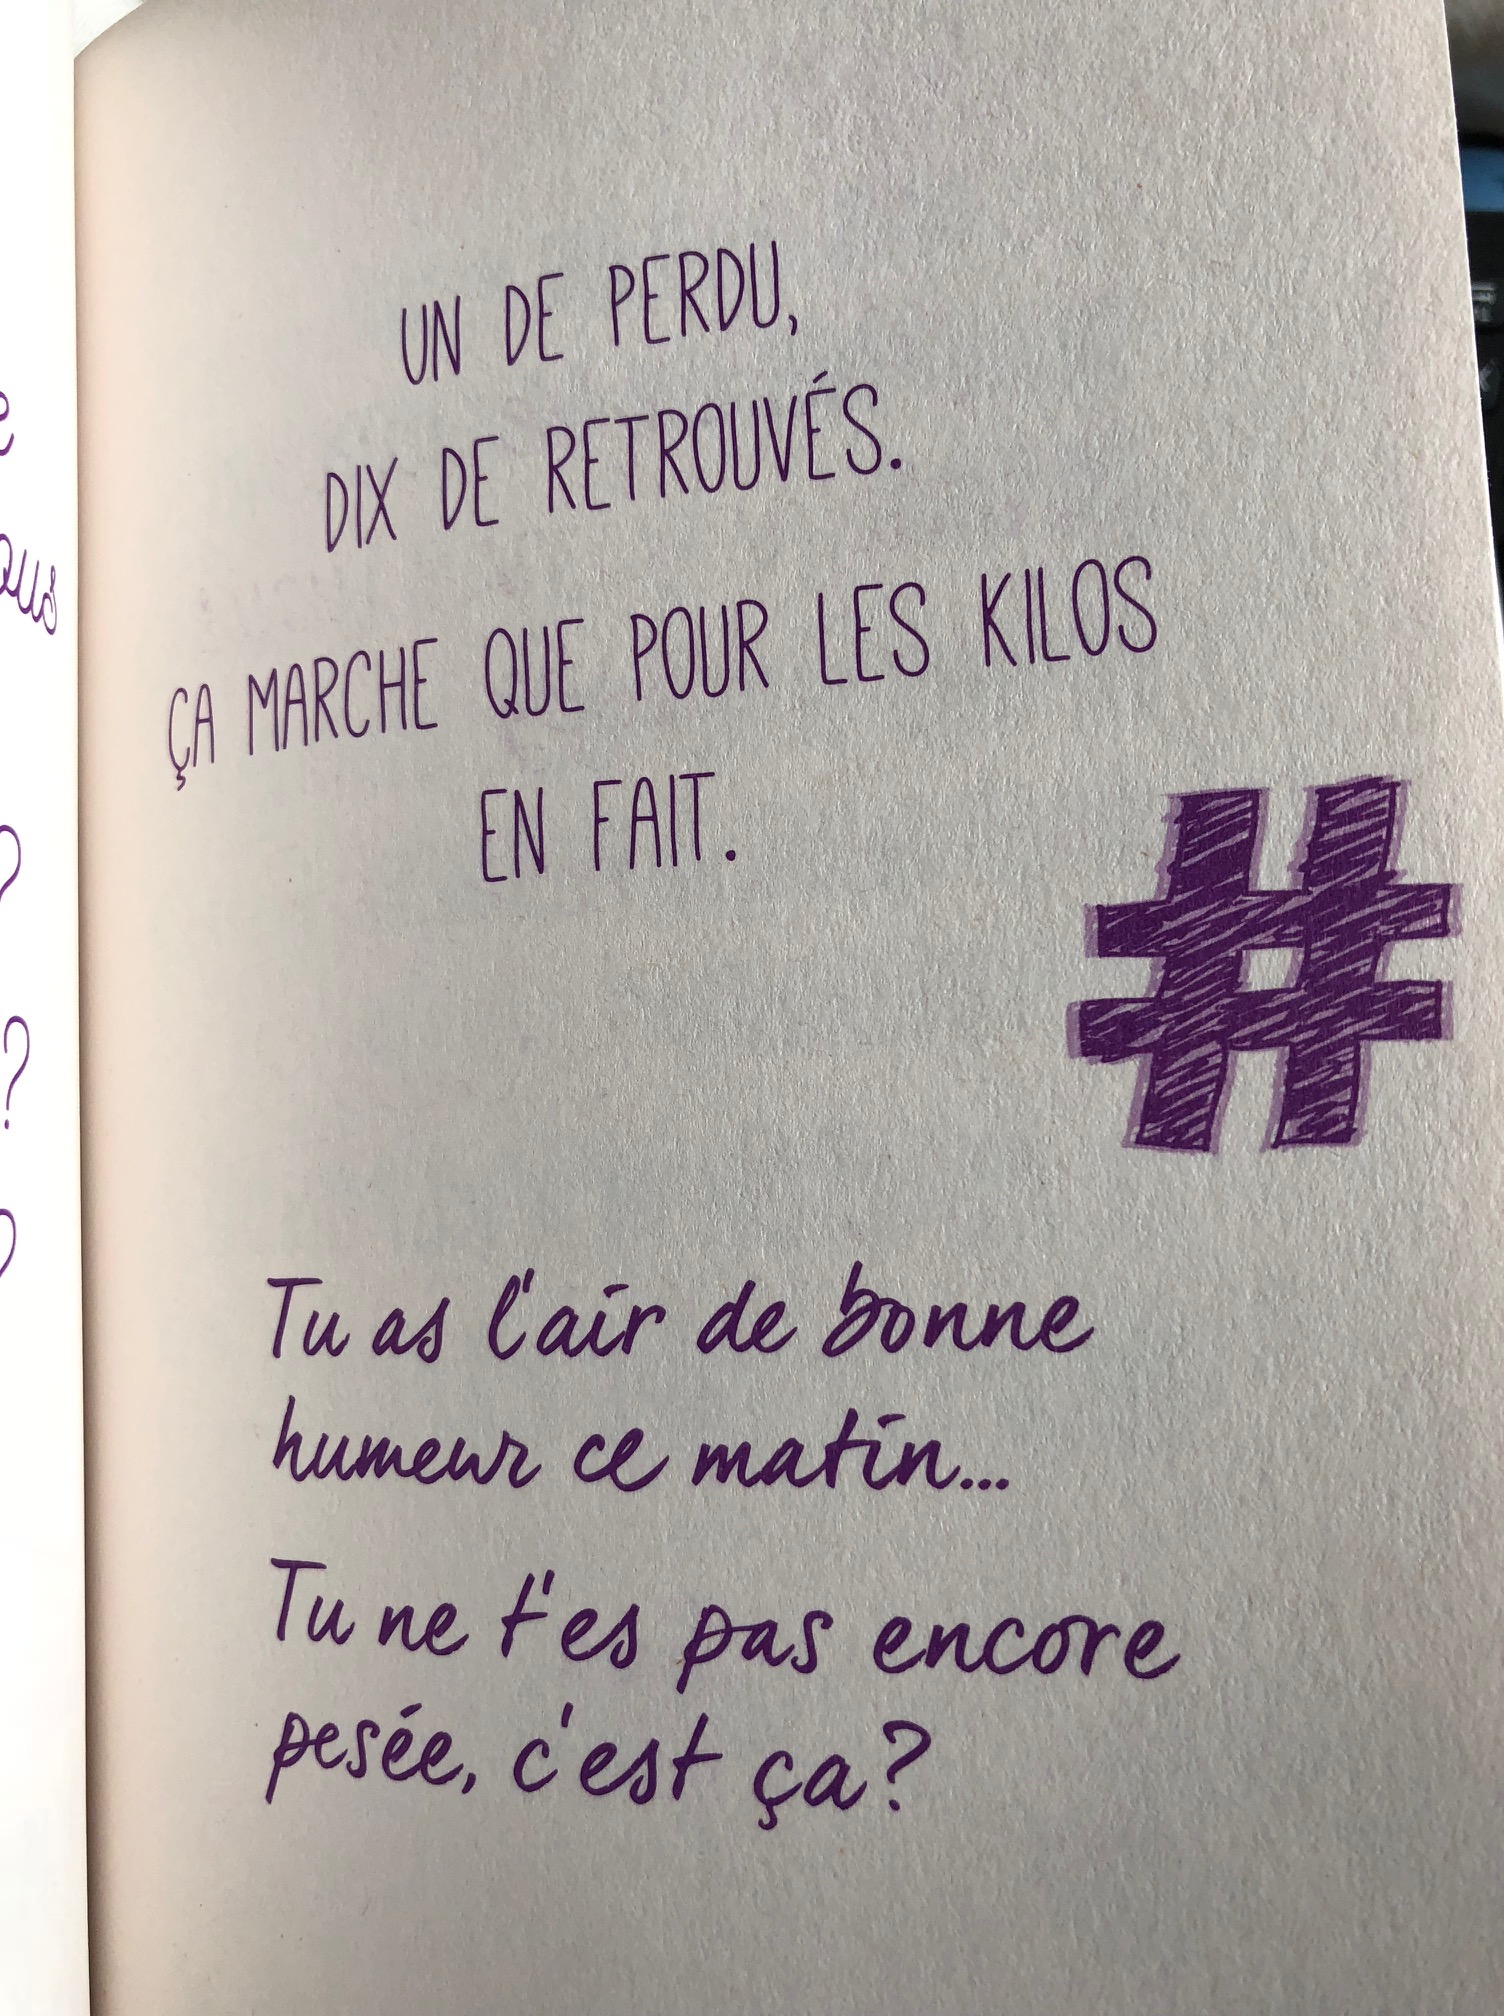 UN DE PERDU,
DIX DE RETROUVÉS.
ÇA MARCHE QUE POUR LES KILOS
EN FAIT.
#
Tu as l'air de bonne
humeur ce matin...
Tu ne t'es pas encore
pesée, c'est ça?